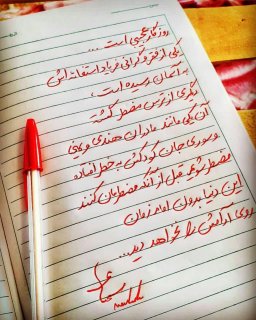 روزگار عجیبی است...
یکی از فقر و گرانی فریاد استغاثه اش
به آسمان رسیده است،
دیگری از ترس مضطر گشته
آن یکی مانند مادران هندی و یمنی
و سوری جان کودکش به خطر افتاده
مضطر شوید قبل از آنکه مضطرمان کنند
این دنیا بدون امام زمان
روی آرامش را نخواهد دید...